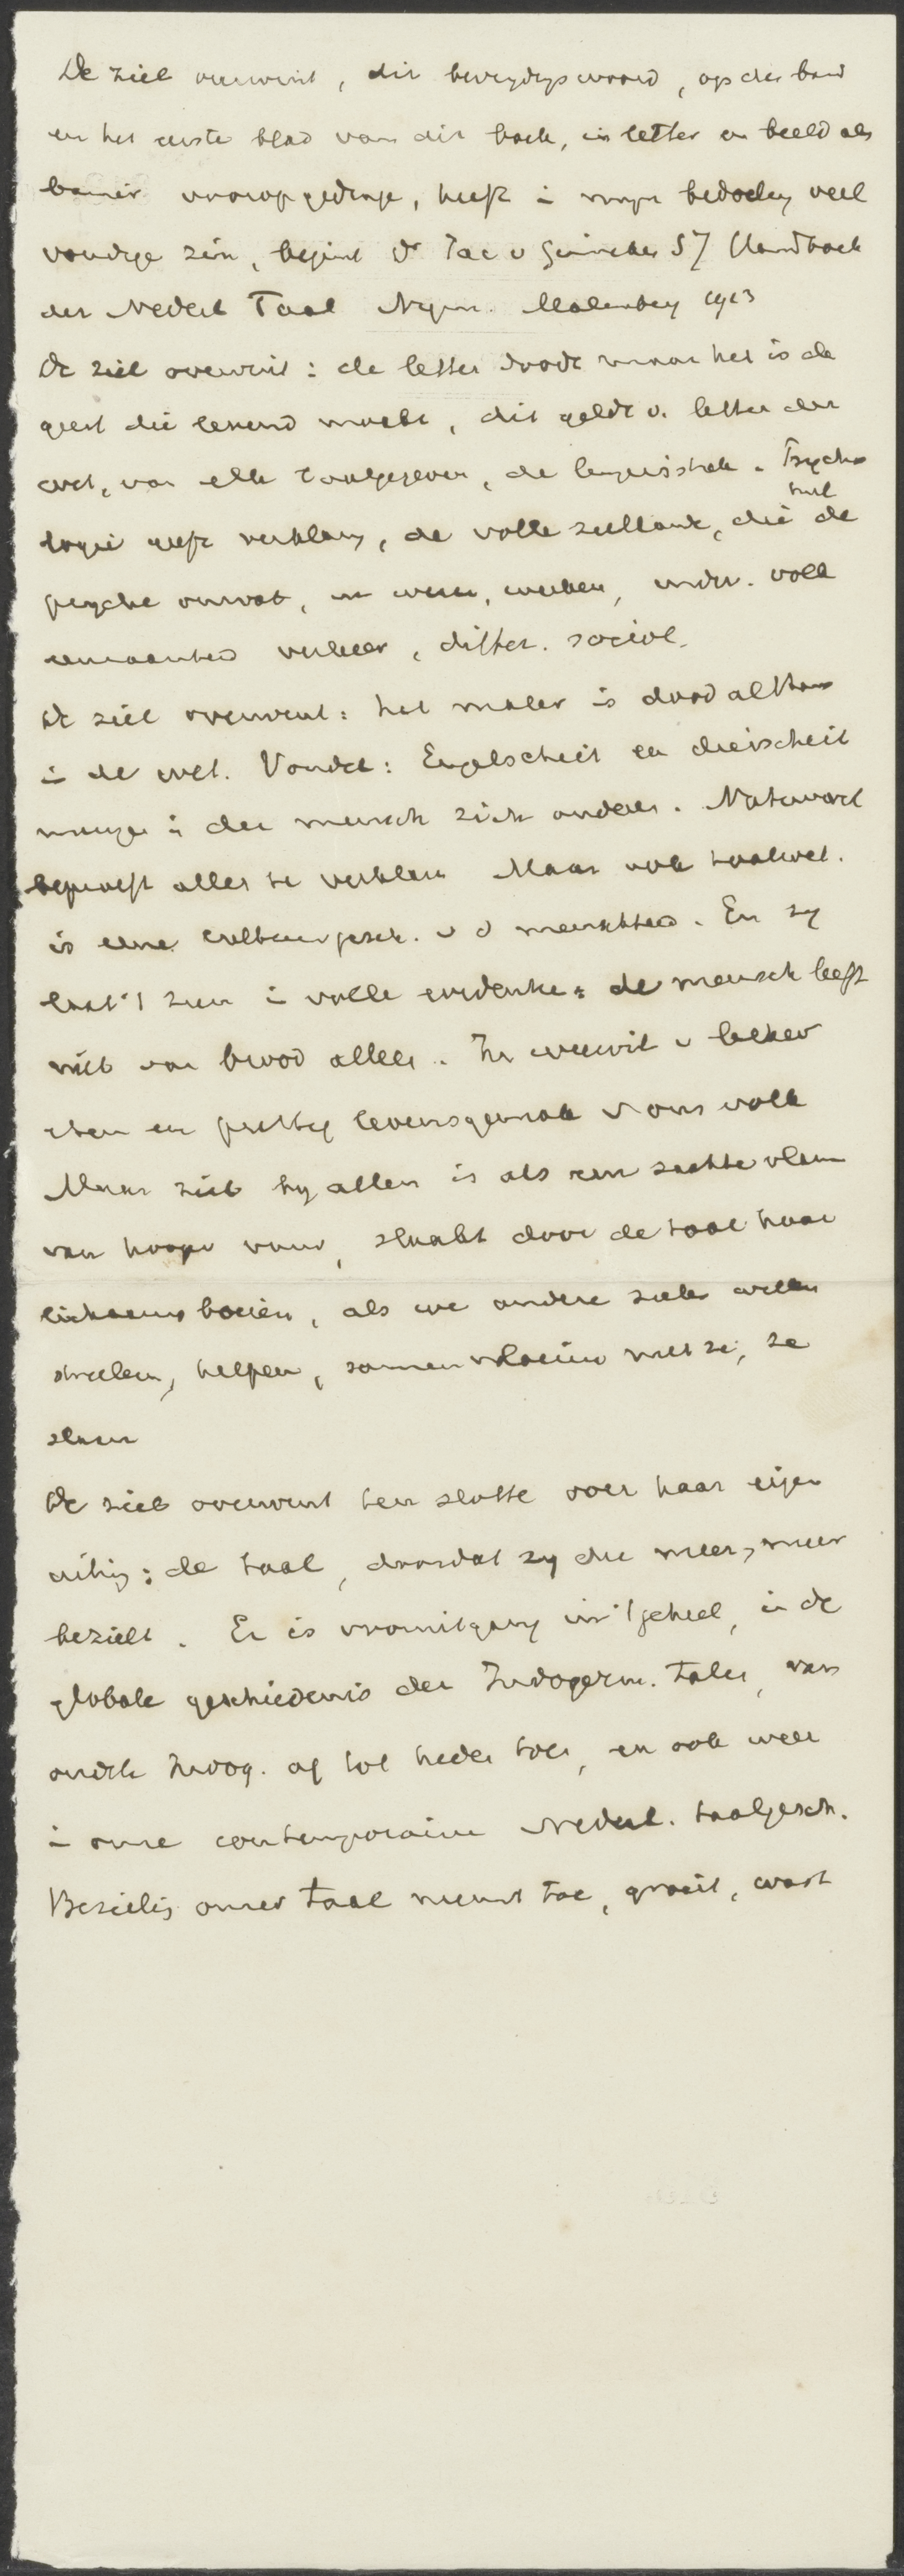 De ziel overwint, dit bevrijdingswoord, op den band
en het eerste blad van dit boek, in letter en beeld als
banier vooropgedrage, heeft i mijn bedoeling veel
voudige zin, begint Dr Jac v Ginneken SJ Handboek
der Nederl Taal Nijm. Malmberg 1913
De ziel overwint: de letter doodt maar het is de
geest die levend maakt, dit geldt v. letter der
wet, van elk taalgegeven, de linguistiek. Psycho
logie geeft verklaring, de volle zielkunde, die heel de
psyche omvat, in wezen, werken, indiv. volle
verkeer, differ. sociol.
De ziel overwint: het is dood althans
i de wet. Vondel: Engelscheit en dierscheit
menge i den mensch zich onder een. Natuurwet
beproeft alles te verklaren Maar ook taalwet.
is eene cultuurgesch. v d menschheid. En zij
laat 't zien i volle evidentie: de mensch leeft
niet van brood alleen. In weerwil v lekker
eten en prettig levensgemak v ons volk
Maar ziel bij allen is als een zachte vlam
van hooger vuur, slaakt door de taal haar
lichaams boeien, als we andere zielen willen
streelen, helpen, samenvloeien met ze, ze
slaan
De ziel overwint ten slotte over haar eigen
uiting: de taal, doordat zij die meer, meer
bezielt. Er is vooruitgang in 't geheel, in de
globale geschiedenis der Indogerm. talen, van
oudste Indog. af tot heden toe, en ook weer
i onze contemporaine Nederl. taalgesch.
Bezieling onzer taal neemt toe, groeit, wast